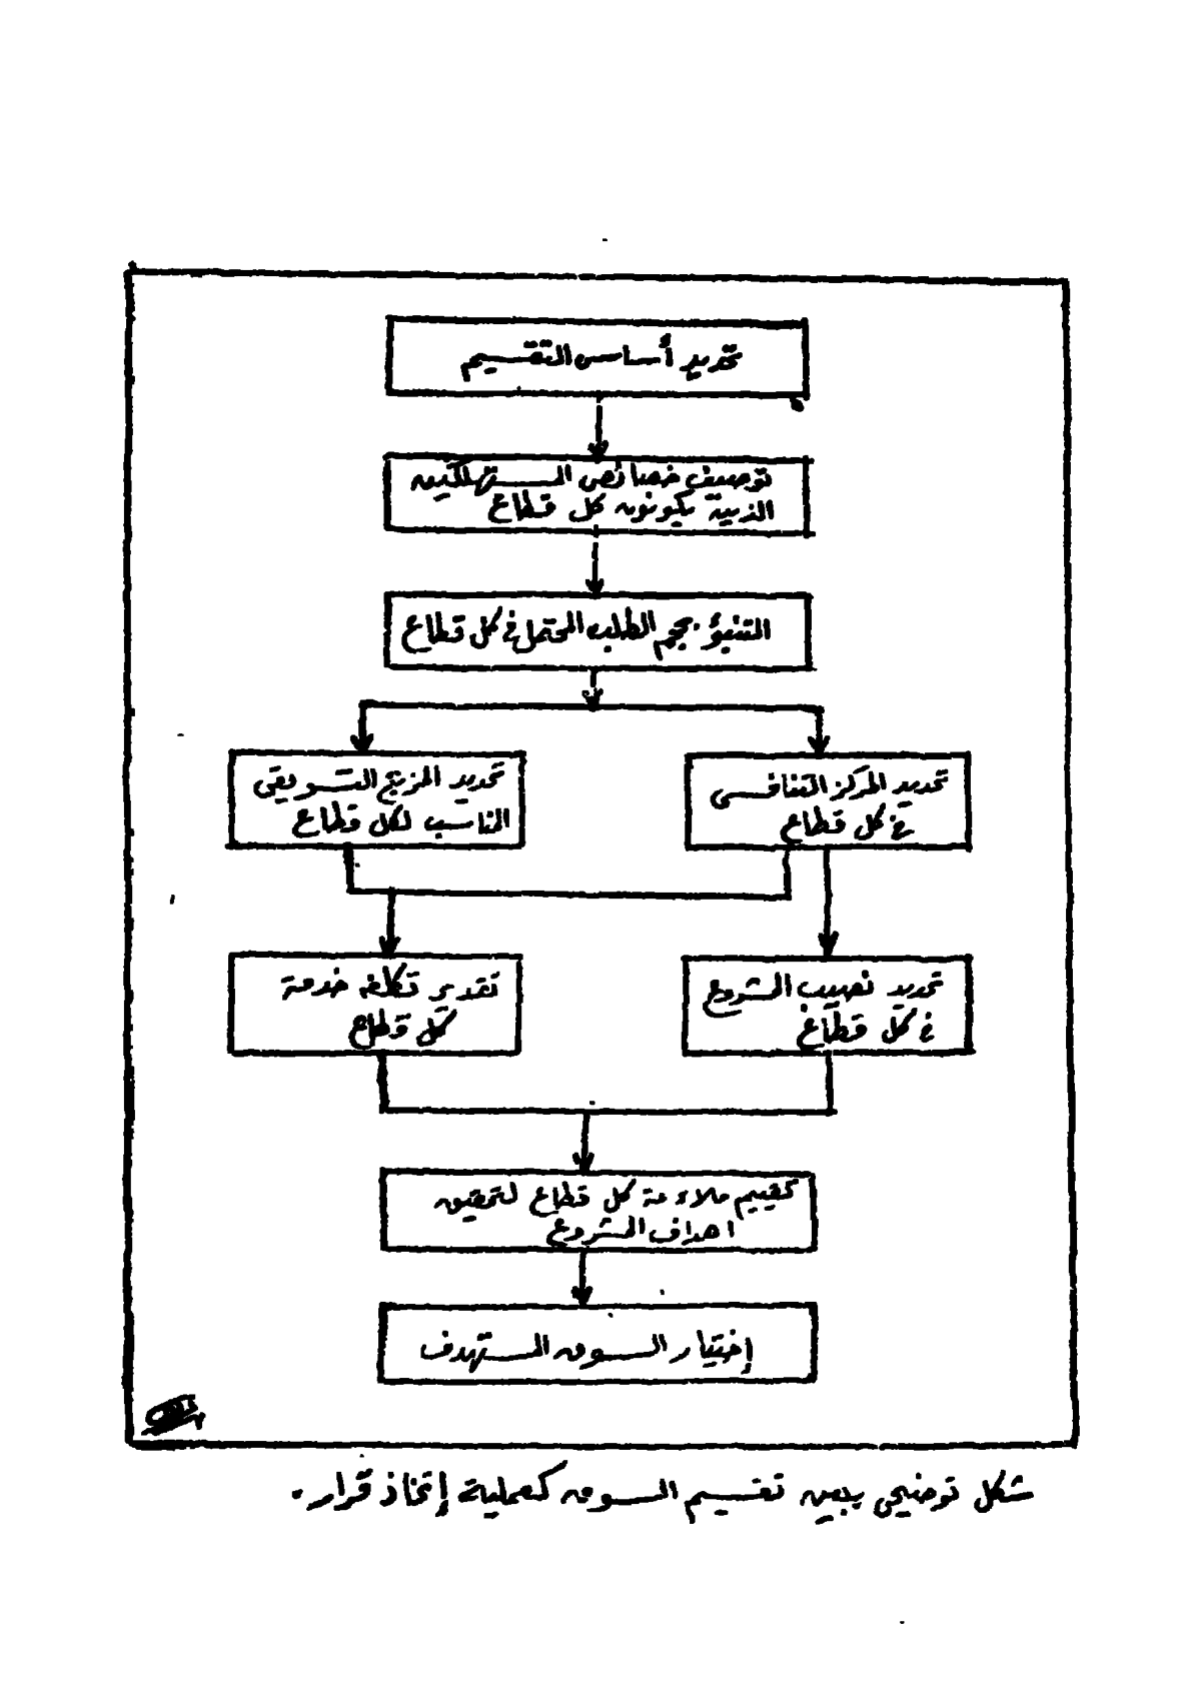 تحديد أساس التقسيم
توصيف خصائص المستهلكين
الذين يكونون كل قطاع
التنبؤ بحجم الطلب المحتمل في كل قطاع
تحديد المركز التنافسى
في كل قطاع
تحديد المزيج التسويقى
المناسب لكل قطاع
تحديد نصيب المشروع
في كل قطاع
تقدير تكلفه خدمة
كل قطاع
تقييم ملاءمة كل قطاع لتحقيق
اهداف المشروع
إختيار السوق المستهدف
شكل توضيحى يبين تقسيم السوق كعملية إتخاذ قرار.